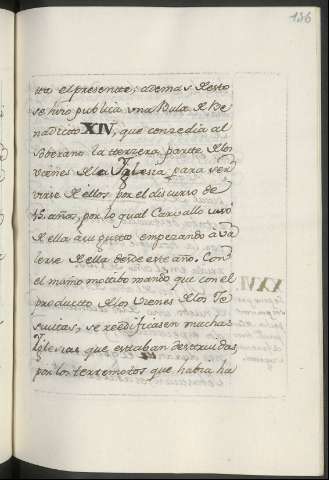 126
to el presente; ademas de esto
se hizo publica una Bula de Be
nedicto XIV, que consedia al
Soberano la terzera parte de los
vienes de la Iglesia para ser
virse de ellos por el discurso de
15. años, por lo qual Carvallo usó
de ella a su gusto empezando a va
lerse de ella desde este año. Con
el mismo motibo mandó que con el
producto de los vienes de los Je
suitas, se reedificasen muchas
Iglesias que estaban destruidas
por los terremotos que habia ha